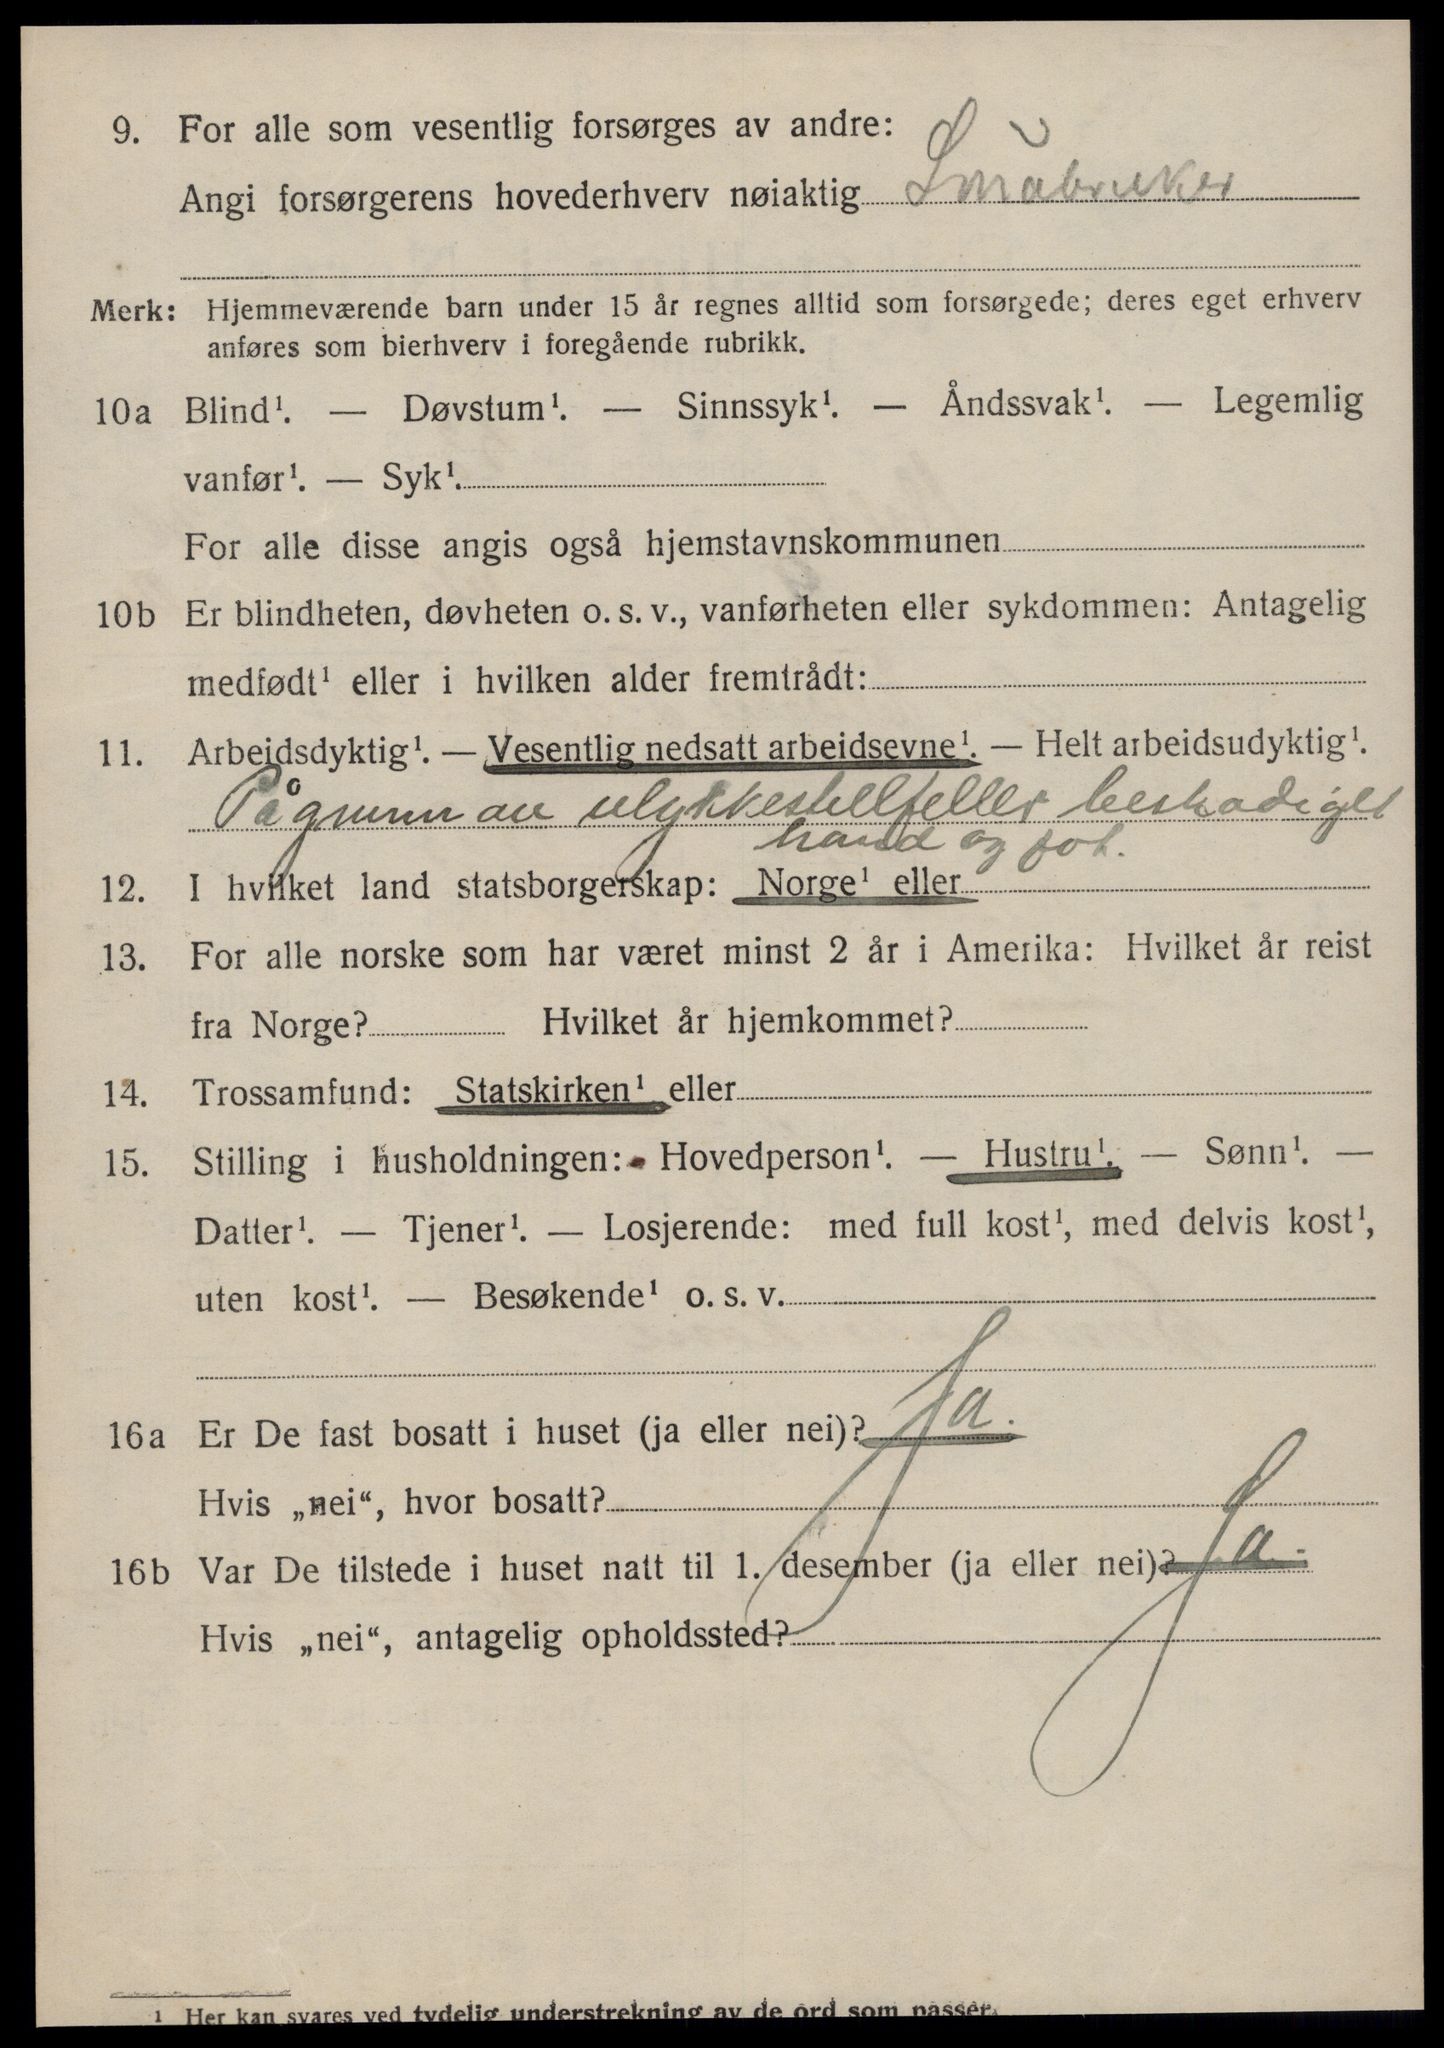 9. For alle som vesentlig forsørges av andre:
Angi forsørgerens hovederhverv nøiaktig Småbruker
Merk: Hjemmeværende barn under 15 år regnes alltid som forsørgede; deres eget erhverv
anføres som bierhverv i foregående rubrikk.
10a Blind¹. — Døvstum¹. — Sinnssyk¹. — Åndssvak¹. — Legemlig
vanfør¹. — Syk¹.
For alle disse angis også hjemstavnskommunen
10b Er blindheten, døvheten o. s. v., vanførheten eller sykdommen: Antagelig
medfødt¹ eller i hvilken alder fremtrådt:
11. Arbeidsdyktig¹. — Vesentlig nedsatt arbeidsevne¹. — Helt arbeidsudyktig¹.
På grunn av ulykkestilfeller beskadiget
hand og fot.
12. I hvilket land statsborgerskap: Norge¹ eller
13. For alle norske som har været minst 2 år i Amerika: Hvilket år reist
fra Norge? Hvilket år hjemkommet?
14. Trossamfund: Statskirken¹ eller
15. Stilling i husholdningen: Hovedperson¹. — Hustru¹. — Sønn¹. —
Datter¹. — Tjener¹. — Losjerende: med full kost¹, med delvis kost¹,
uten kost¹. — Besøkende¹ o. s. v.
16a Er De fast bosatt i huset (ja eller nei)? Ja.
Hvis „nei“, hvor bosatt?
16b Var De tilstede i huset natt til 1. desember (ja eller nei)? Ja.
Hvis „nei“, antagelig opholdssted?
¹ Her kan svares ved tydelig understrekning av de ord som passer.